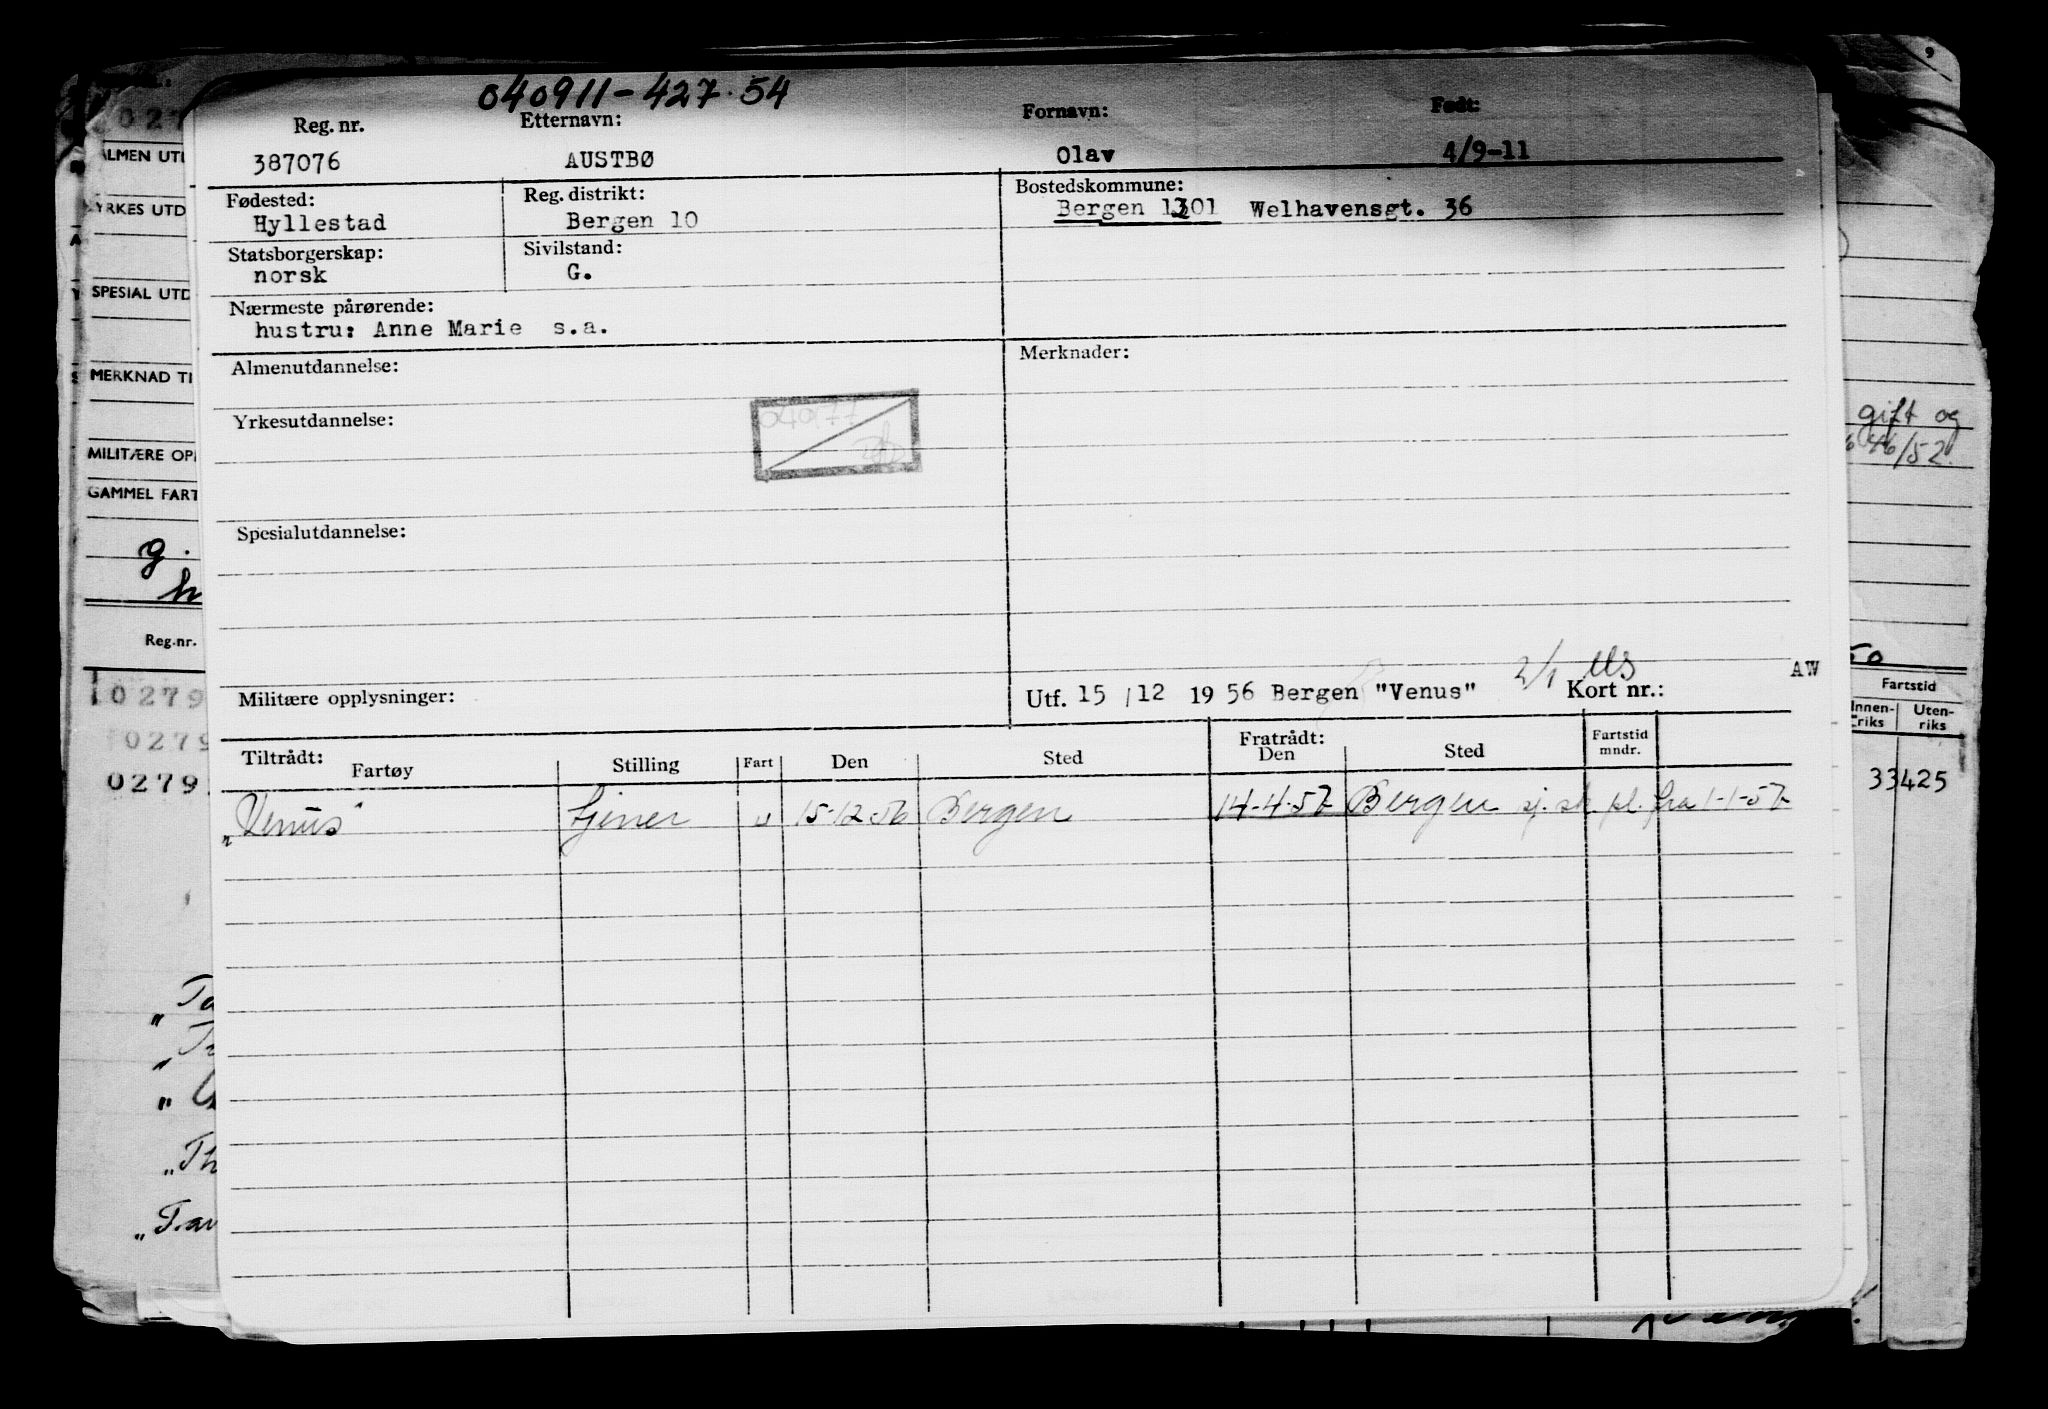 040911-427.54
Reg. nr. Etternavn: Fornavn: Født:
387076 AUSTBØ Olav 4/9-11
Fødested: Reg. distrikt: Bostedskommune:
Hyllestad Bergen 10 Bergen 1301 Welhavensgt. 36
Statsborgerskap: Sivilstand:
norsk G.
Nærmeste pårørende:
hustru: Anne Marie s.a.
Almenutdannelse: Merknader:
040177
Yrkesutdannelse:
Spesialutdannelse:
2/1 Ms
Militære opplysninger: Utf. 15/12 1956 Bergen "Venus" Kort nr.: AW
Tiltrådt: Fratrådt: Fartstid
Fartøy Stilling Fart Den Sted Den Sted mndr.
„Venus" tjener u 15-12-56 Bergen 14-4-57 Bergen sj. sk pl. fra 1-1-57
027
ALMEN UTD
YRKES UTD
SPESIAL UTD
MERKNAD TI
MILITÆRE OPP
GAMMEL FART
g.
h
Reg.nr.
0279
0279
0279
„Ta
„Th
„Tav
gift og
46/52.
50
Fartstid
Innenriks Utenriks
33425